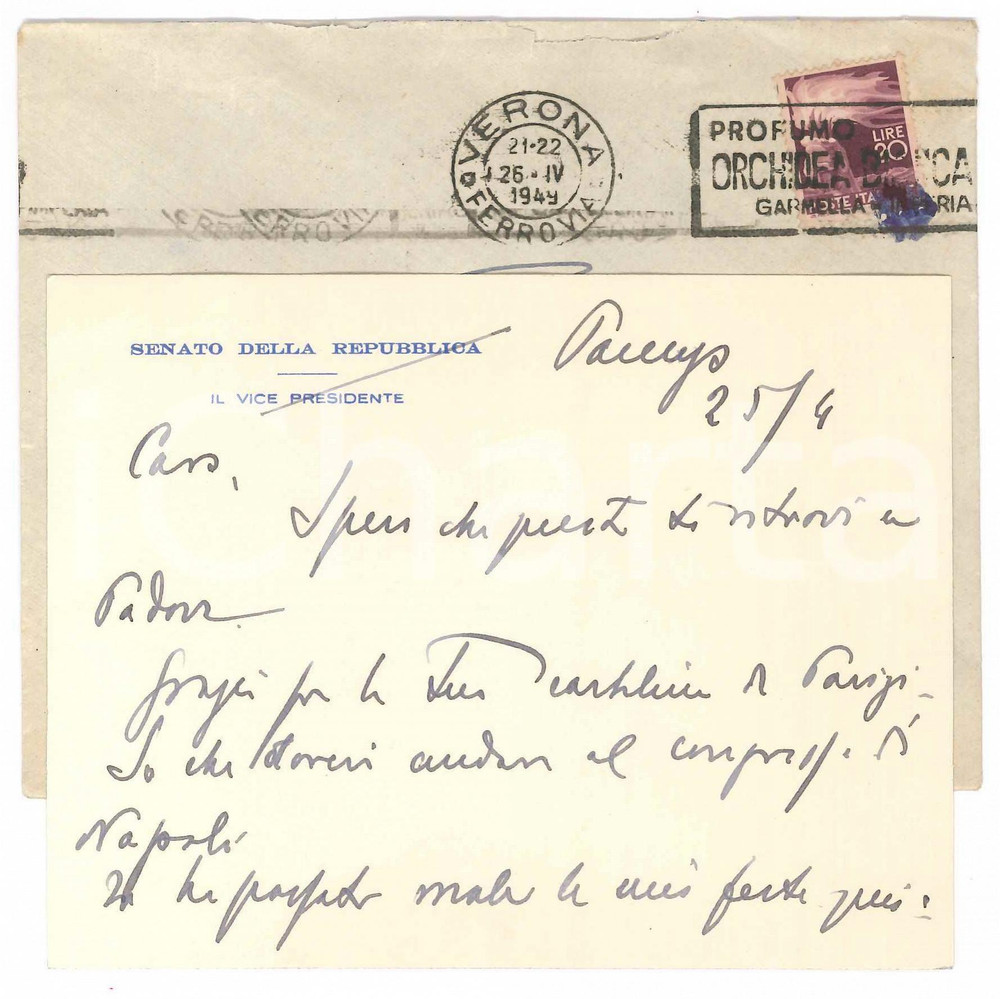 VERONA
21-22
26·IV
1949
FERROVIA
PROFUMO
ORCHIDEA
GARMELLA
LIRE
20
SENATO DELLA REPUBBLICA
IL VICE PRESIDENTE
25/4
Caro,
Spero che questa ti ritrovi a
Padova
Grazie per la Tua cartolina di Parigi.
So che dovevi andare al congresso di
Napoli
Io ho passato male le mie feste